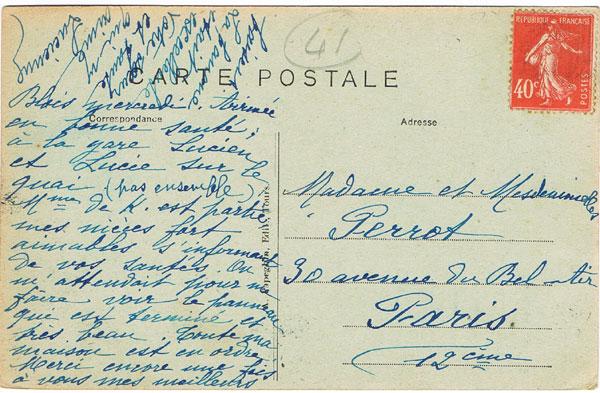 41
RÉPUBLIQUE FRANÇAISE
40c
POSTES
CARTE POSTALE
Correspondance
Adresse
Blois mercredi. Arrivée
en bonne santé,
à la gare Lucien
et Lucie sur le
quai (pas ensemble)
Mme de K. est partie
mes nièces fort
aimables s'informent
de vos santés. On
m'attendait pour me
faire voir le panneau
qui est terminé et
très beau. Toute ma
maison est en ordre
Merci encore une fois
à vous mes meilleurs
Lucienne
Édit., Tours.
Madame et Mesdemoiselles
Perrot
30 avenue du Bel-Air
Paris
12ème